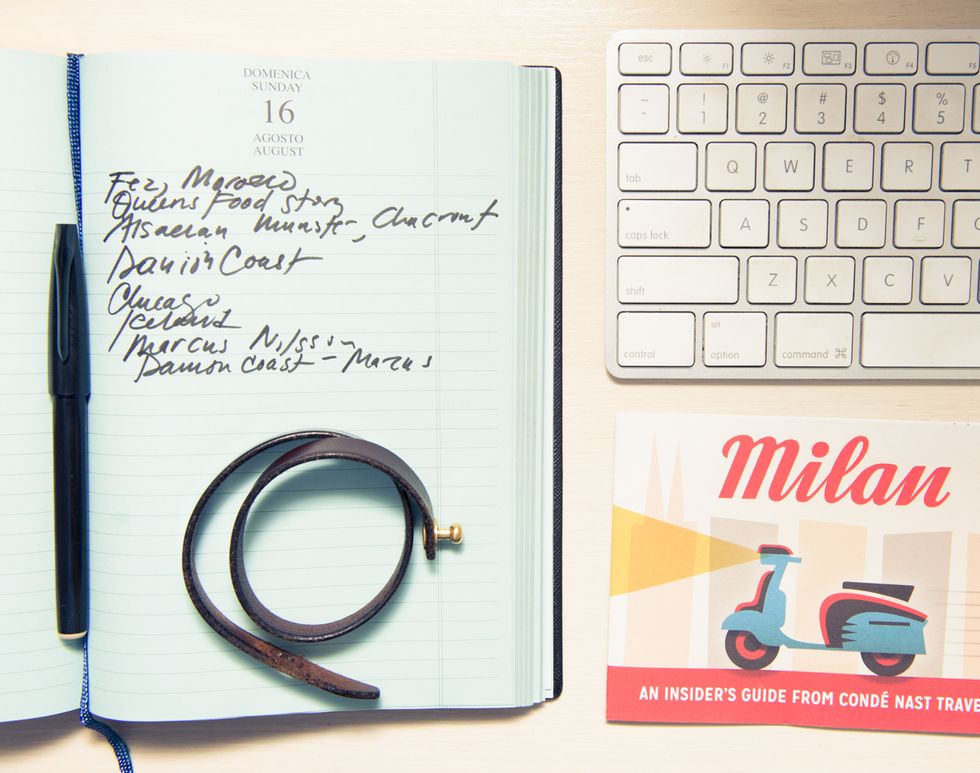 DOMENICA
SUNDAY
16
AGOSTO
AUGUST
Fez, Morocco
Queens Food Story
Alsacian Munster, Chacrout
Damion Coast
Chicago
Iceland
Marcus Nilsson
Damon Coast - Marcus
esc
F1
F2
F3
F4
F5
~ `
! 1
@ 2
# 3
$ 4
% 5
tab
Q W E R T
caps lock
A S D F
shift
Z X C V
control
alt option
command ⌘
Milan
AN INSIDER'S GUIDE FROM CONDÉ NAST TRAVE